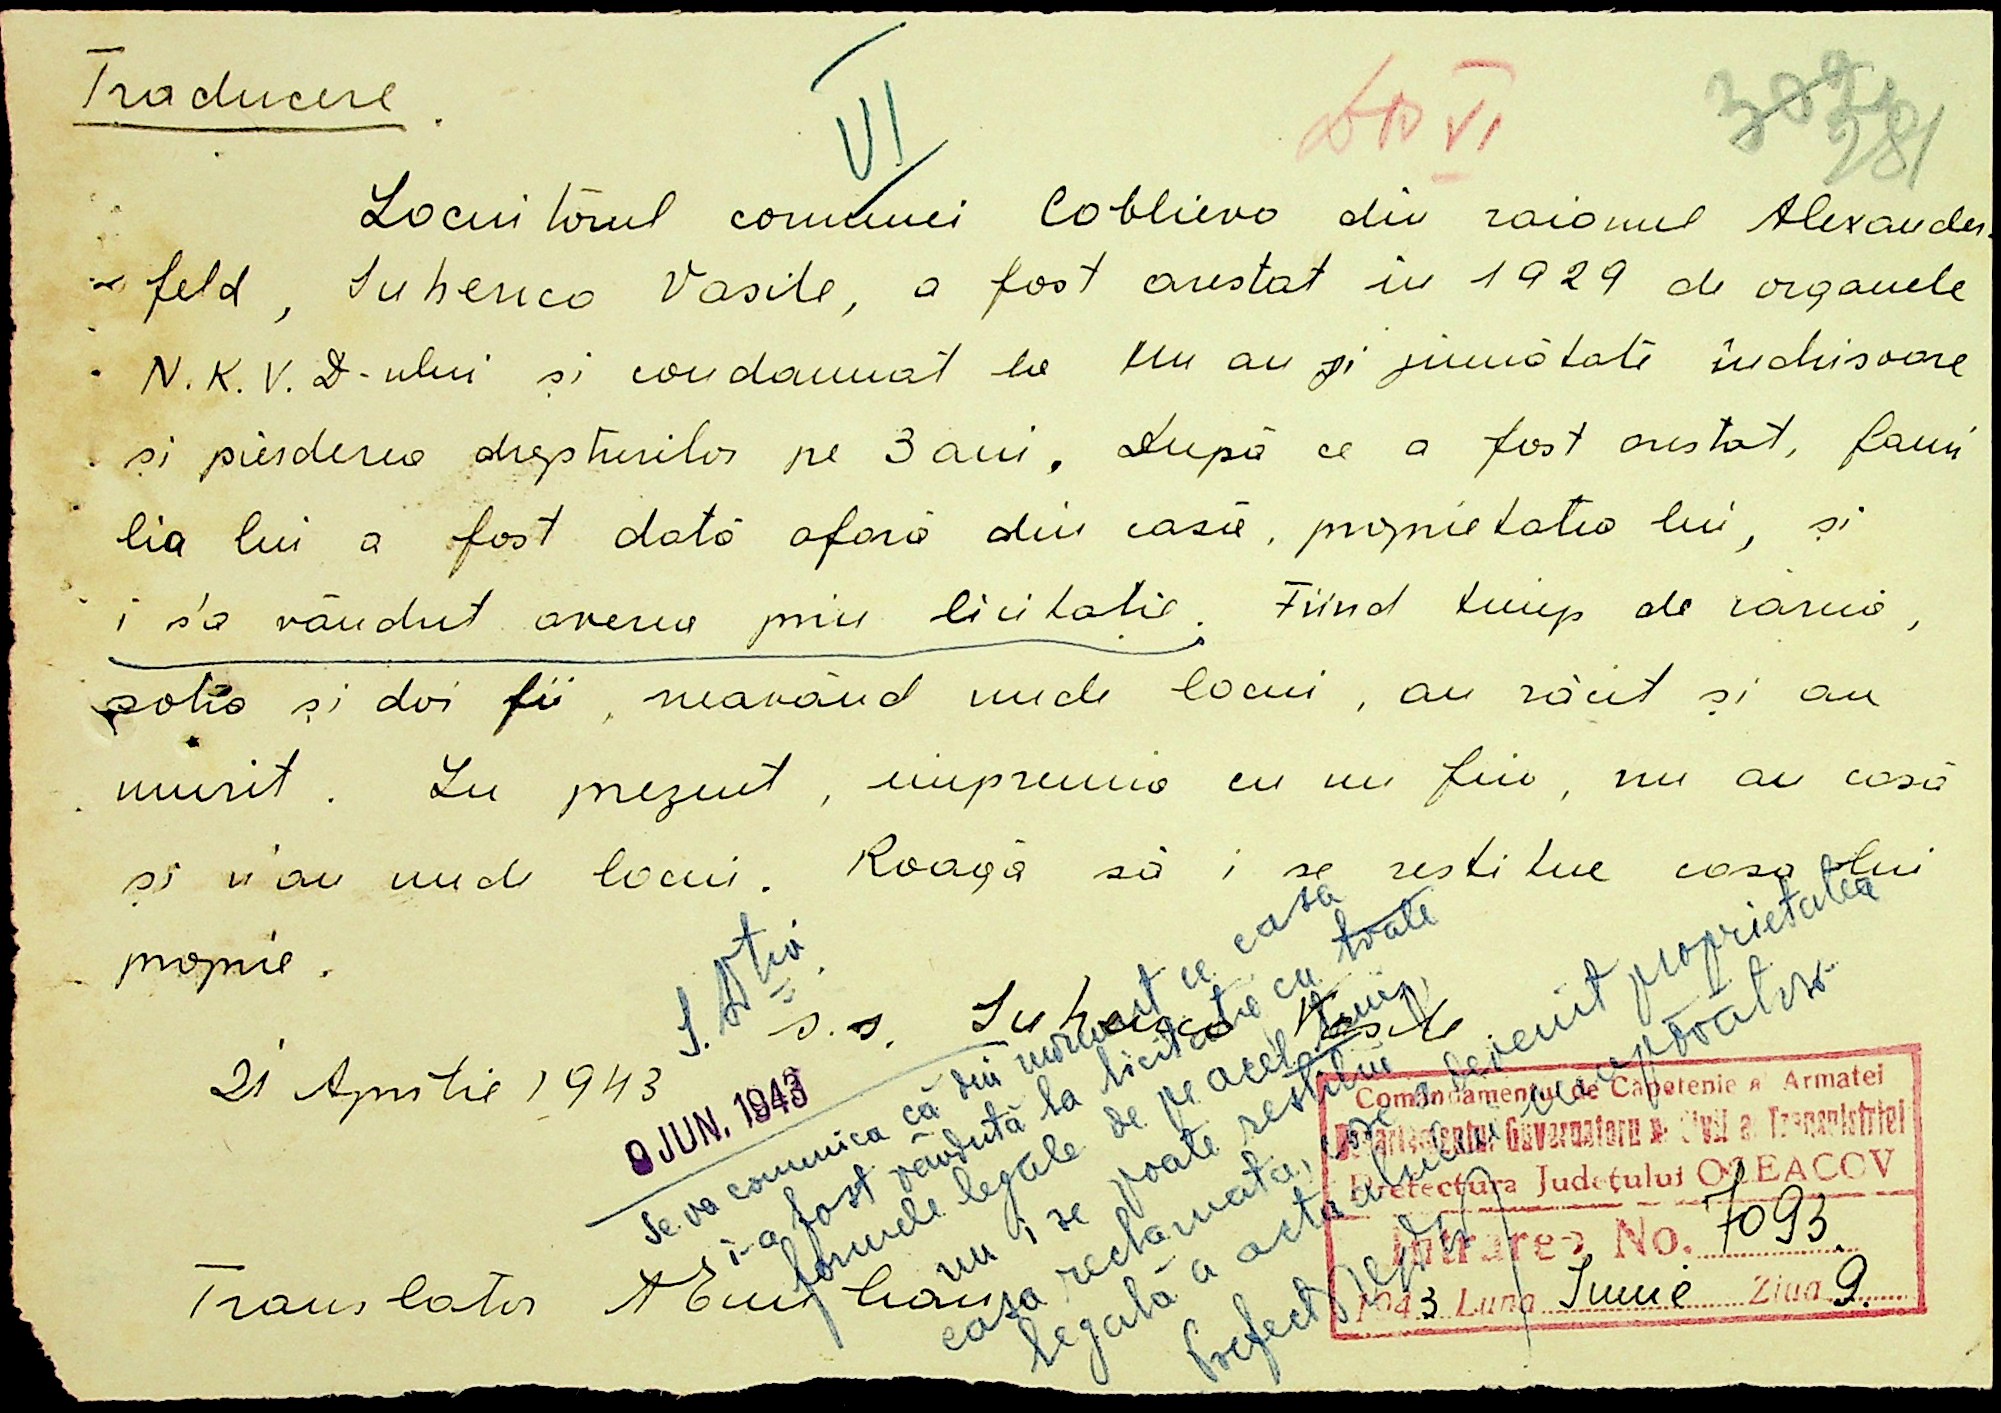 Traducere.
VI
VI
309
281
Locuitorul comunei Coblievo din raionul Alexander-
feld, Suhenco Vasile, a fost arestat în 1929 de organele
N.K.V.D-ului și condamnat la un an și jumătate închisoare
și pierderea drepturilor pe 3 ani. După ce a fost arestat, fami
lia lui a fost dată afară din casă, proprietatea lui, și
i s'a vândut averea prin licitație. Fiind timp de iarnă,
soția și doi fii, neavând unde locui, au răcit și au
murit. În prezent, împreună cu un fiu, nu au casă
și n'au unde locui. Roagă să i se restitue casa lui
proprie.
s.s. Suhenco Vasile
21 Aprilie 1943
9 JUN. 1943
Translator
Se va comunica că din moment ce casa
i-a fost vândută la licitație cu toate
formele legale de pe acel timp,
nu i se poate restitui
casa reclamată, care a devenit proprietatea
legală a actualului cumpărător
Prefect
Comandamentul de Căpetenie al Armatei
Departamentul Guvernatorul Civil al Transnistriei
Prefectura Județului OCEACOV
Intrarea No. 7093.
1943 Luna Iunie Ziua 9.